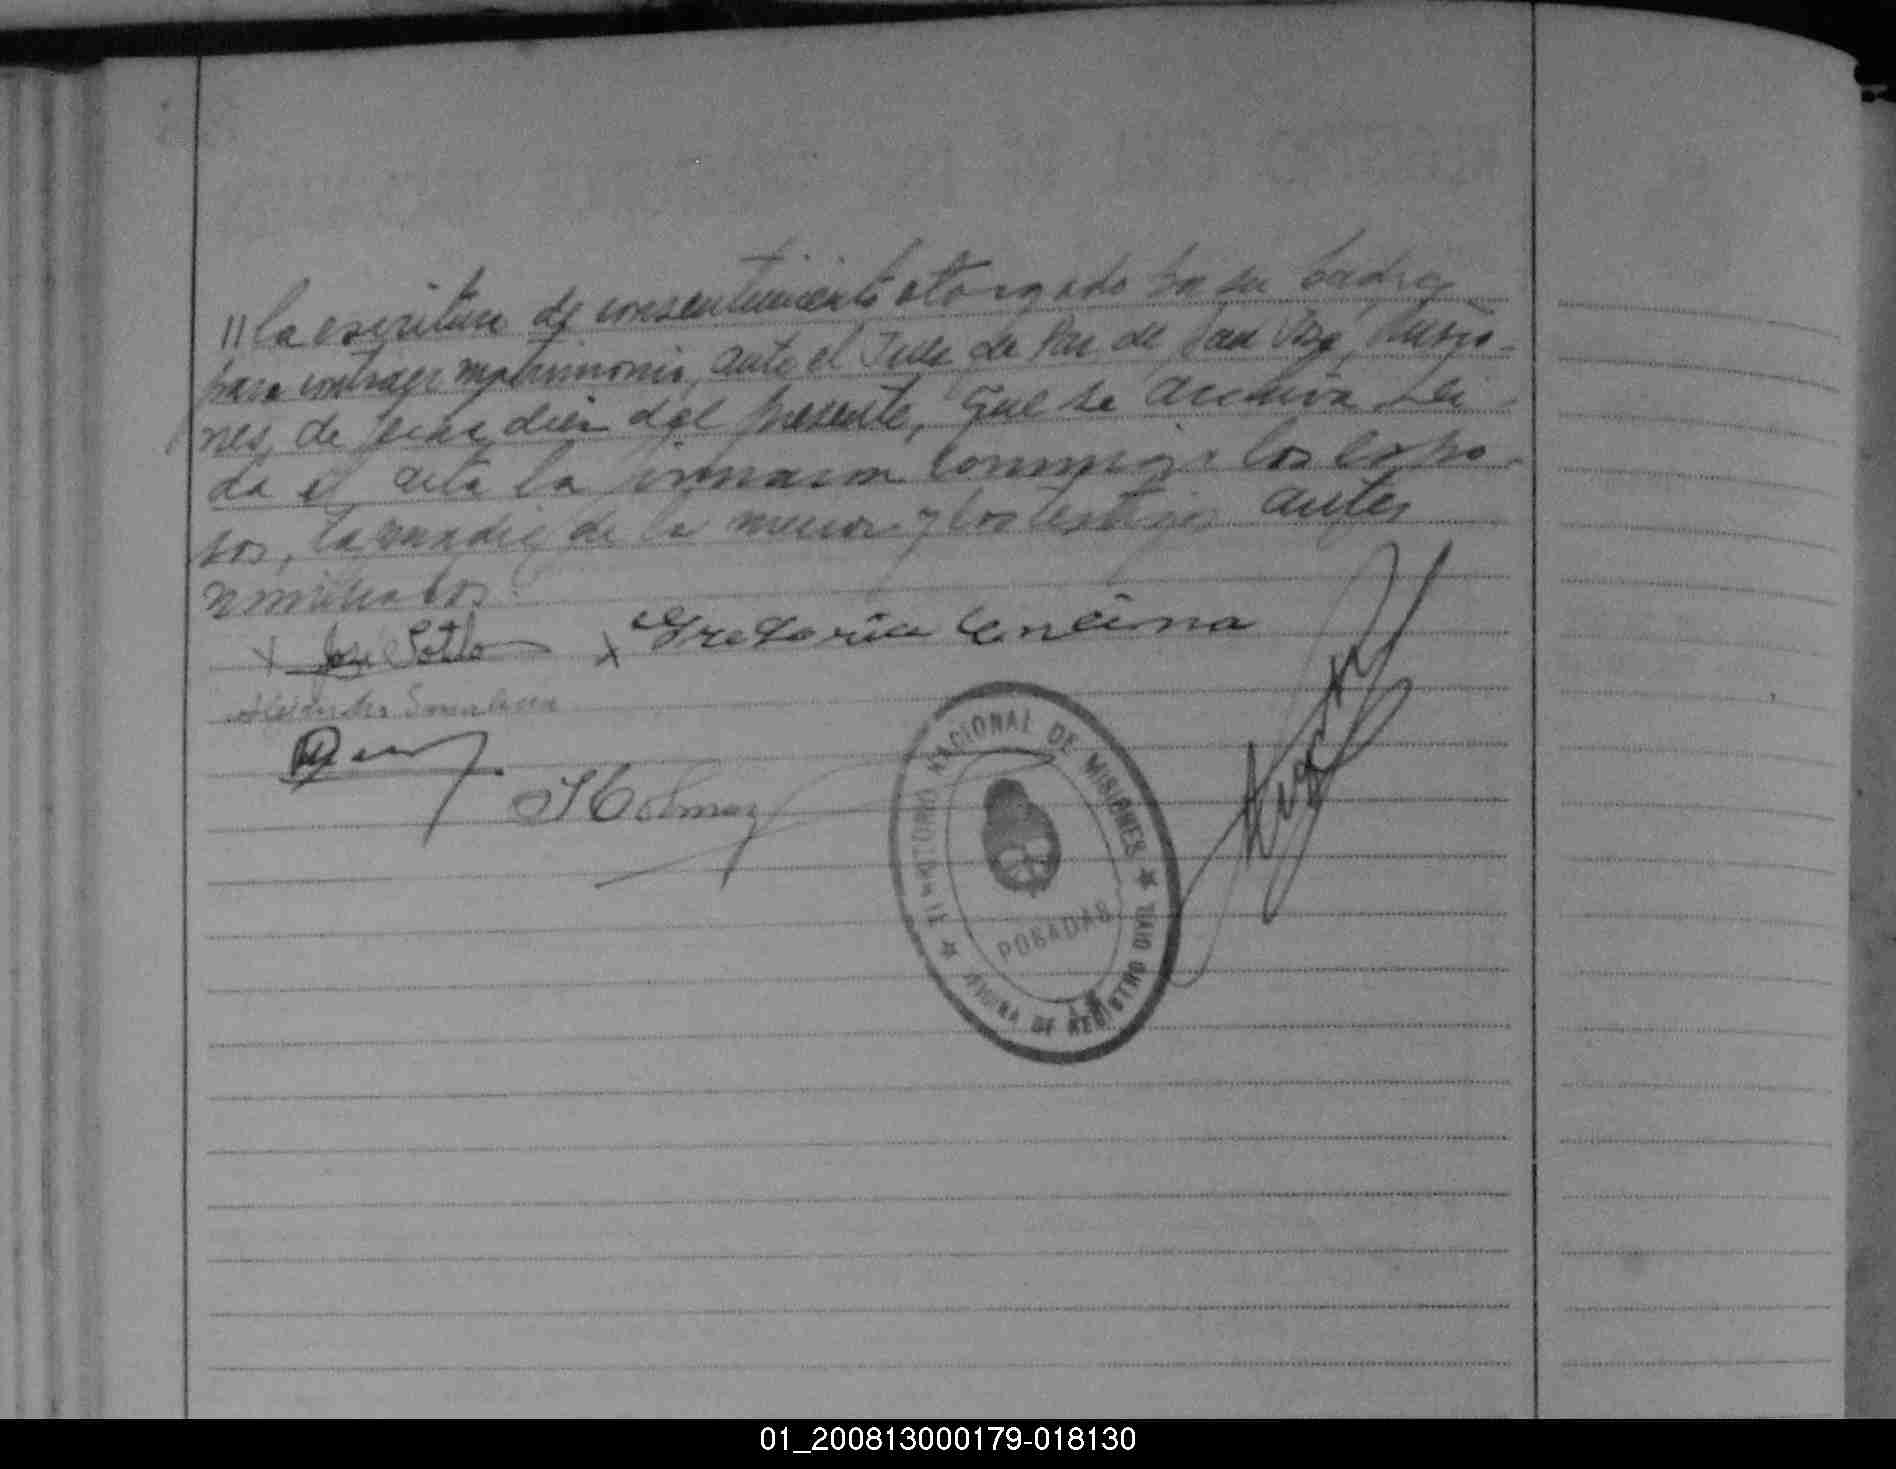 // la escritura de consentimiento otorgado por su padre
para contraer matrimonio, ante el Juez de Paz de San José, Misio-
nes, de fecha diez del presente, que se archiva. Lei-
da el acta la firmaron conmigo los espo-
sos, la madre de la menor y los testigos antes
nominados.
x José Sotelo x Gregoria Encina
Alejandra
Holmaz
TERRITORIO NACIONAL DE MISIONES
POSADAS
OFICINA DE REGISTRO CIVIL
01_200813000179-018130